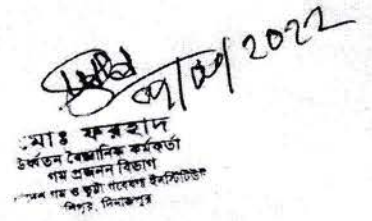 2022
মোঃ ফরহাদ
ঊর্ধ্বতন বৈজ্ঞানিক কর্মকর্তা
গম প্রজনন বিভাগ
গম ও ভুট্টা গবেষণা ইনস্টিটিউট
দিনাজপুর